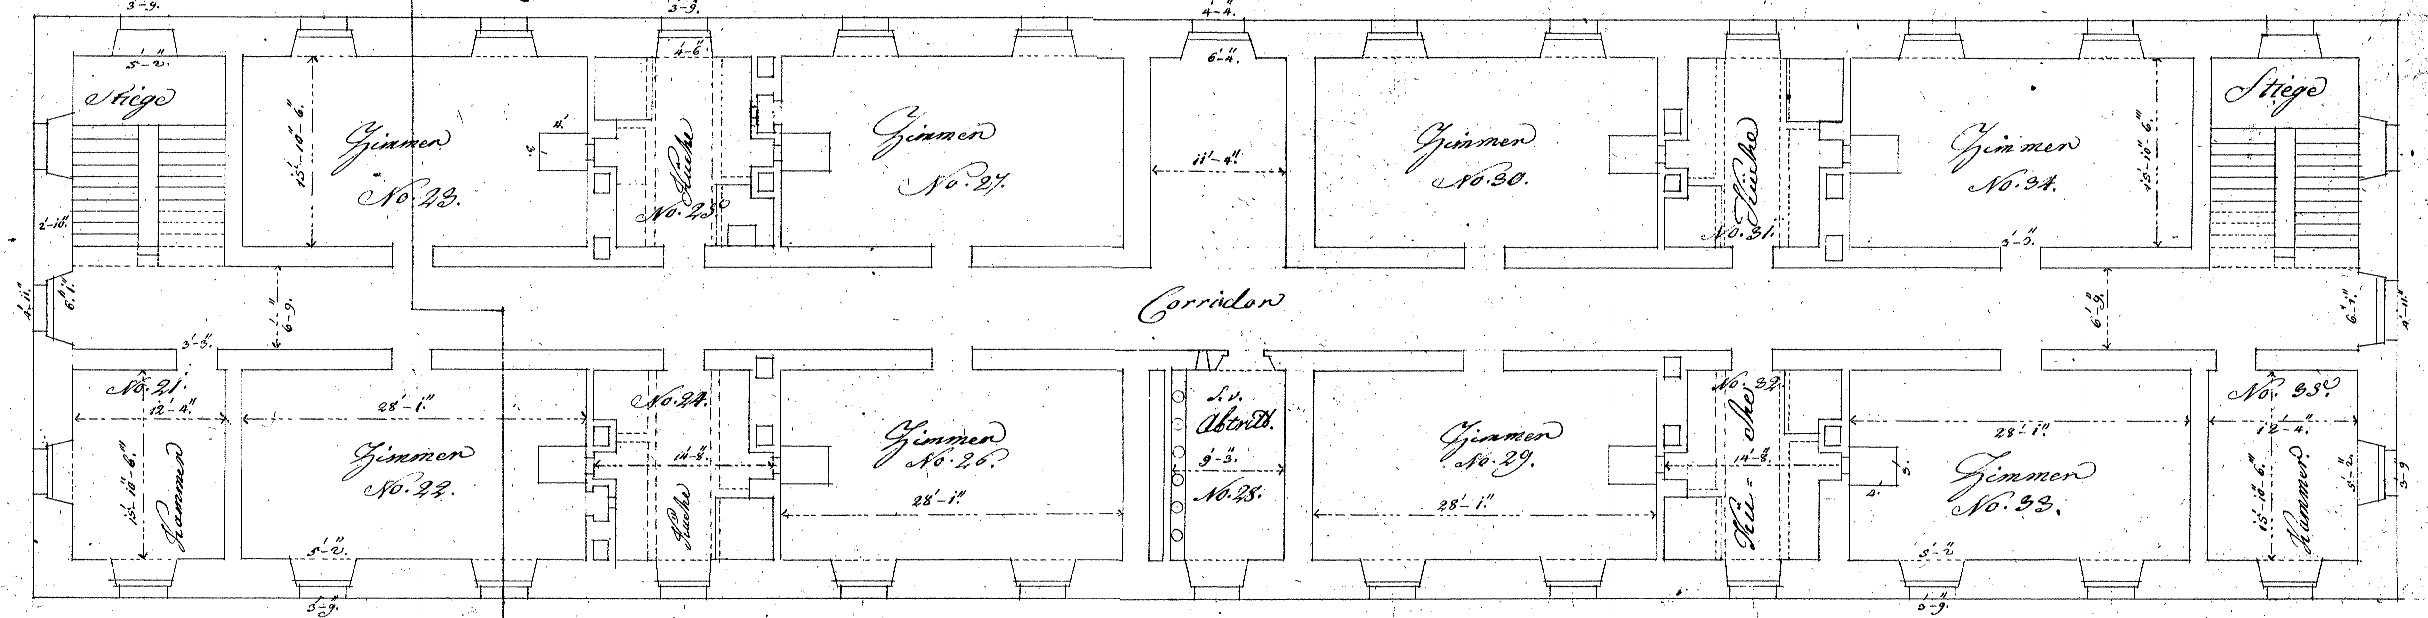 3'-9.
3'-9.
4'-4.
5'-2.
4'-6."
6'-4.
Stiege
Zimmer
No. 23.
15'-10"-6."
4.'
3.
Küche
No. 25.
Zimmer
No. 27.
11'-4."
Zimmer
No. 30.
Küche
No. 31.
Zimmer
No. 34.
15'-10"-6."
3'-3."
Stiege
2'-10."
4'-11."
6'.1."
6'-9."
Corridor
6'-9."
6'-1."
4'-11."
3'-3."
No. 21.
12'-4."
15'-10"-6."
Kammer
28'-1."
Zimmer
No. 22.
5'-2."
No. 24.
14'-8."
Küche
Zimmer
No. 26.
28'-1."
S. v.
Abtritt.
9'-3."
No. 28.
Zimmer
No. 29.
28'-1."
No. 32.
14'-8."
Kü=che
28'-1."
4.'
3.'
Zimmer
No. 33.
5'-2
No. 35.
12'-4."
15'-10"-6."
Kammer.
5'-2."
3'-9
3'-9.
3'-9.